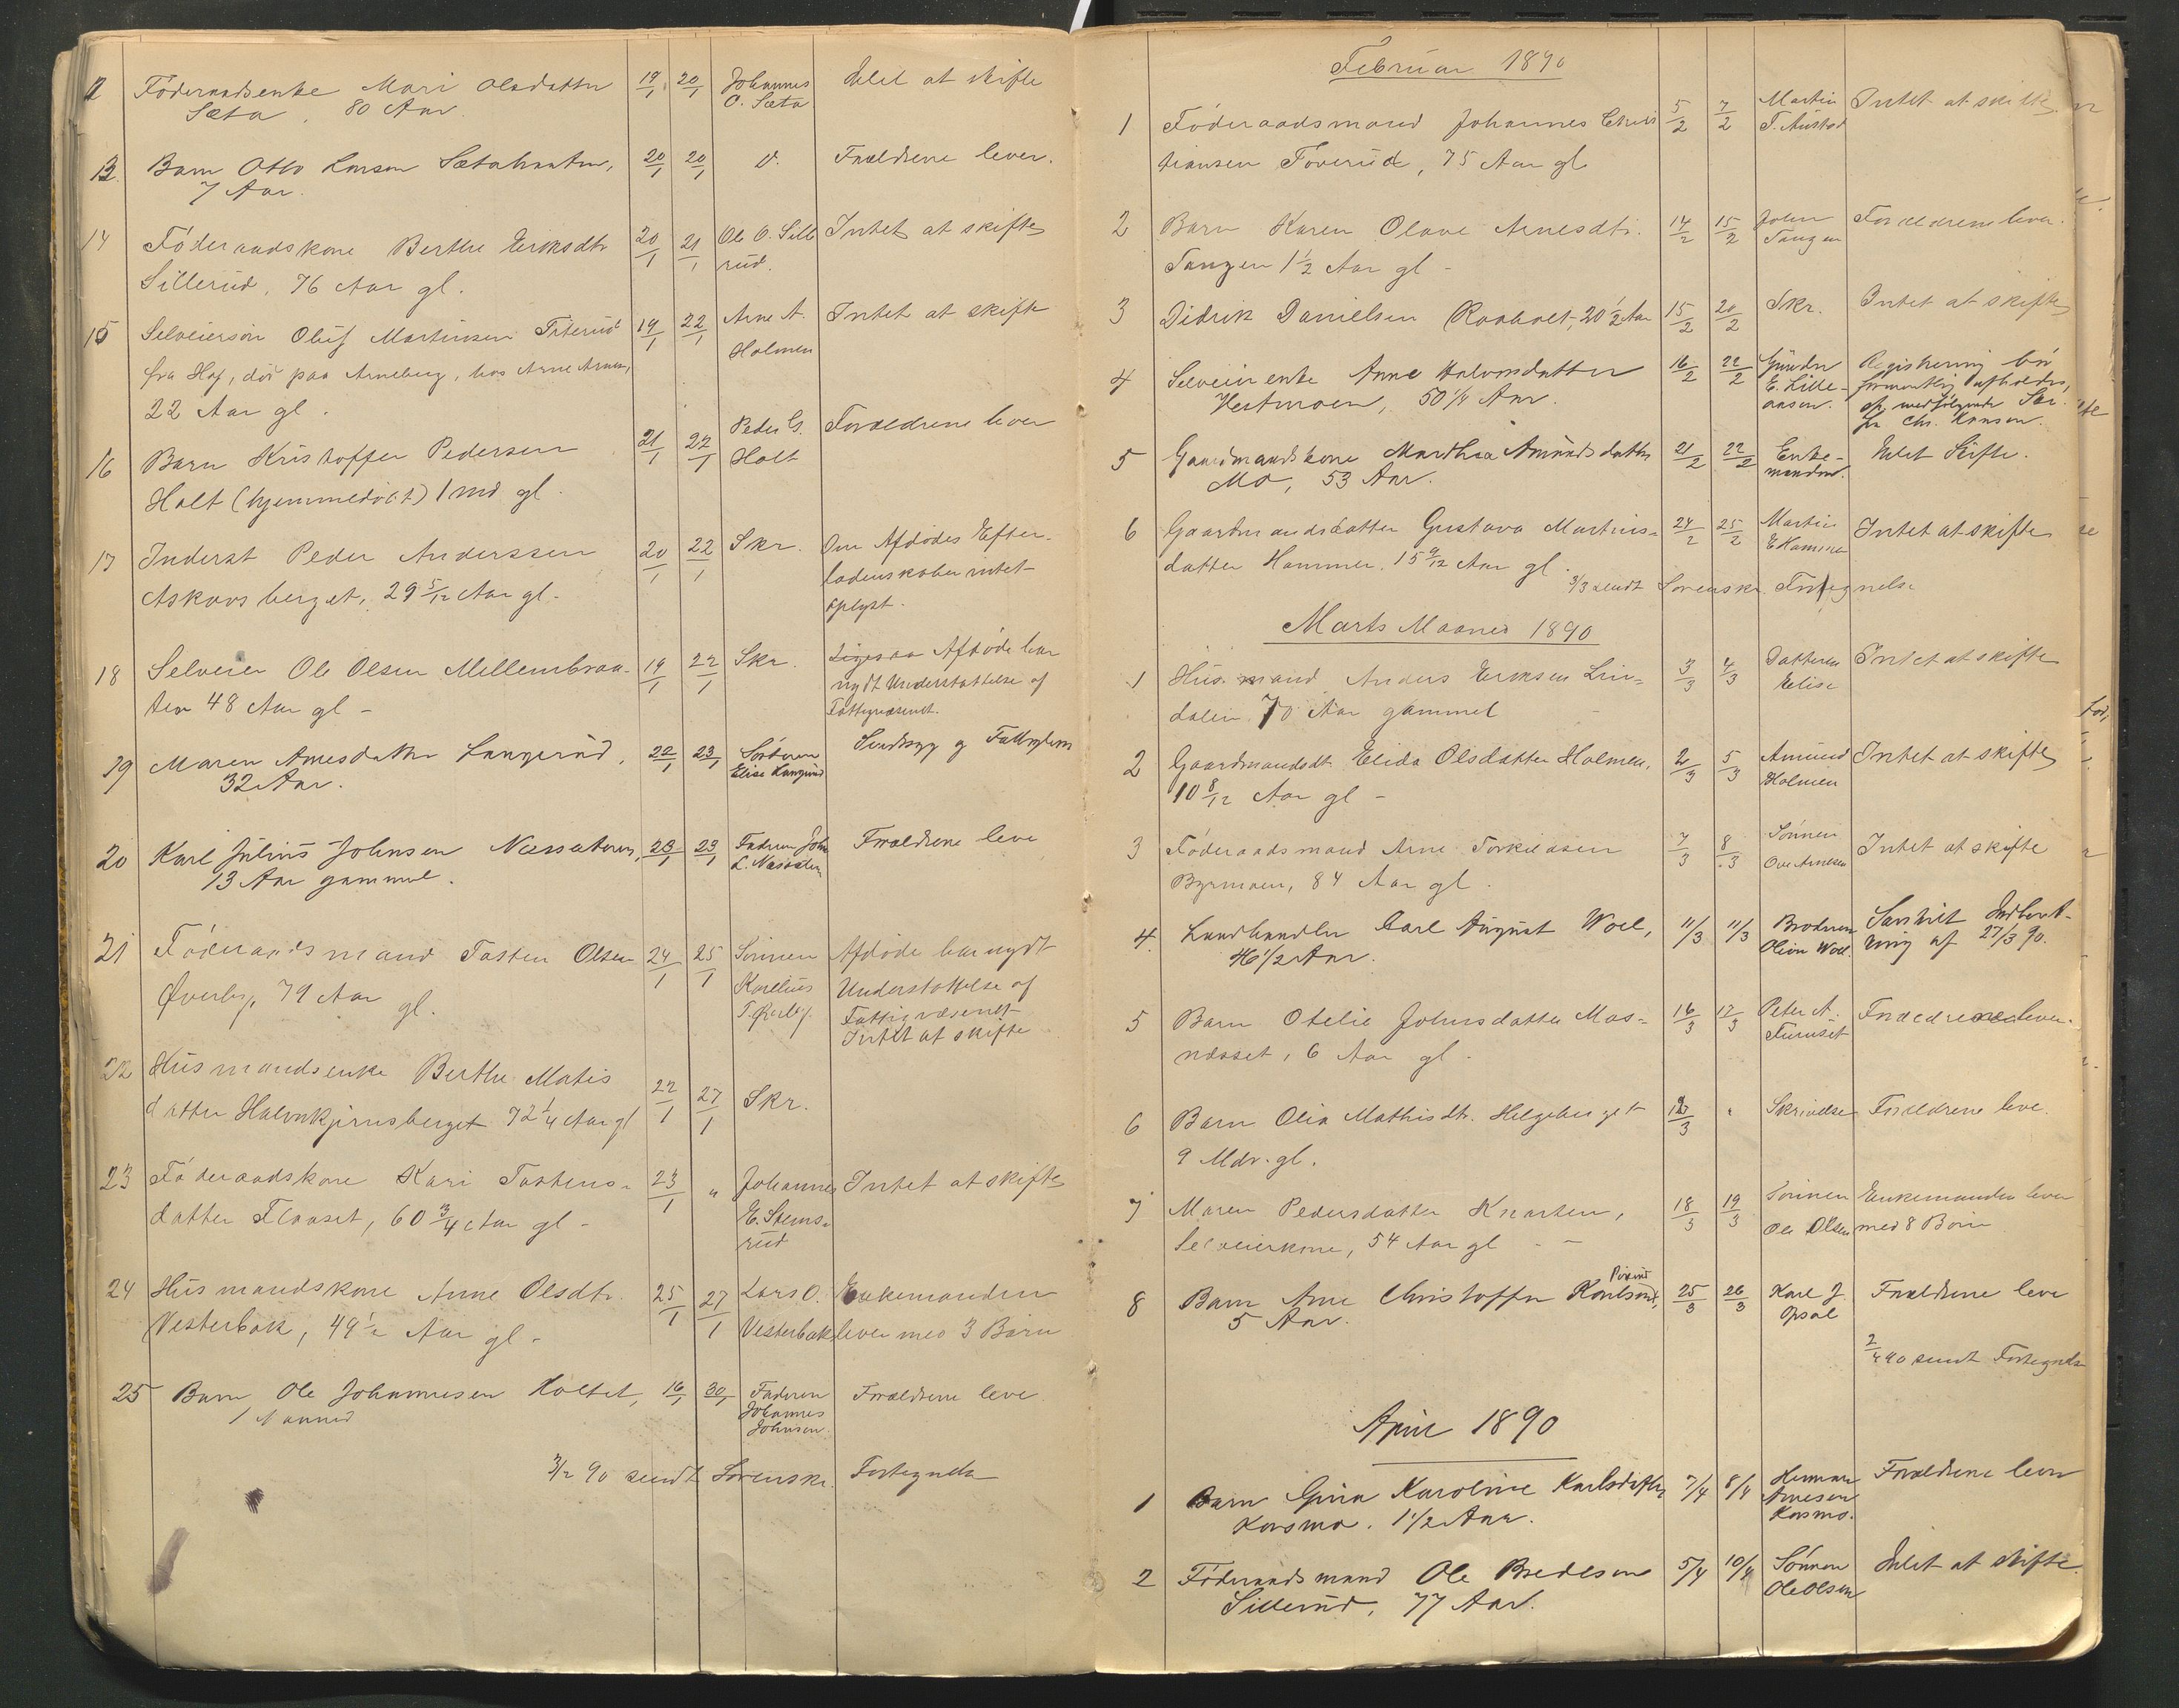 12 Föderaadsenke Mari Olsdatter 19/1 20/1 Johannes Intet at skifte
Sæta, 80 Aar O. Sæta
13. Barn Otto Larsen Sætahaaten, 20/1 20/1 D. Forældrene lever.
7 Aar.
14 Föderaadskone Berthe Eriksdtr 20/1 21/1 Ole O. Sille Intet at skifte
Sillerud, 76 Aar gl. rud.
15 Selveiersön Oluf Martinsen Titerud 19/1 22/1 Arne A. Intet at skifte
fra Hof, död paa Arneberg, hos Arne Arnes, Holmen
22 Aar gl.
16 Barn Kristoffer Pedersen 21/1 22/1 Peder G. Forældrene lever
Holt (hjemmedöbt) 1 md gl. Holt
17 Inderst Peder Anderssen 20/1 22/1 Skr. Om Afdödes Efter-
Askaasberget, 29 5/12 Aar gl. ladenskaber intet
oplyst.
18 Selveier Ole Olsen Millembraa- 19/1 22/1 Skr. Ligesaa Afdöde har
ten 48 Aar gl - nydt Understöttelse af
Fattigvæsenet.
19 Maren Arnesdatter Langerud, 22/1 23/1 Sösteren Sindssyg og Fattiglem
32 Aar. Elise Langerud
20 Karl Julius Johnsen Næssæteren, 23/1 23/1 Faderen John Forældrene leve
13 Aar gammel. L. Næssæteren
21 Föderaadsmand Tosten Olsen 24/1 25/1 Sönnen Afdöde har nydt
Øverby, 79 Aar gl. Karelius Understöttelse af
T. Øverby. Fattigvæsenet
Intet at skifte
22 Husmandsenke Berthe Matis 22/1 27/1 Skr.
datter Halvnkjernsberget 72 1/4 Aar gl
23 Föderaadskone Kari Tostens- 23/1 " Johannes Intet at skifte
datter Flaaset, 60 3/4 Aar gl - E. Stems-
rud
24 Husmandskone Anne Olsdtr. 25/1 27/1 Lars O. Enkemanden
Vesterbak, 49 1/2 Aar gl - Vesterbak lever med 3 Börn
25 Barn Ole Johannesen Holtet, 16/1 30/1 Faderen Forældrene leve
1 Maaned Johannes
Johnsen.
3/2 90 sendt Sorenskr. Fortegnelse
Februar 1890
1 Föderaadsmand Johannes Chris 5/2 7/2 Martin Intet at skifte
tiansen Toverud, 75 Aar gl T. Austad
2 Barn Karen Olave Arnesdtr. 14/2 15/2 John Forældrene lever.
Tangen 1 1/2 Aar gl - Tangen
3 Didrik Danielsen Raabolt, 20 1/2 Aar 15/2 20/2 Skr. Intet at skifte
4 Selveierenke Anne Halvorsdatter 16/2 22/2 Gunder Registrering bör
Vestmoen, 50 1/4 Aar. E. Lille- formentlig afholdes,
aasen. cfr. medfölgende Skr.
fra Chr. Hansen.
5 Gaardmandskone Marthea Amundsdatter 21/2 22/2 Enke- Intet Skifte.
Mo, 53 Aar. manden.
6 Gaardmandsdatter Gustava Martins- 24/2 25/2 Martin Intet at skifte
datter Hammer, 15 9/12 Aar gl. E Hammer
3/3 sendt Sorenskr. Fortegnelse
Marts Maaned 1890
1 Husmand Anders Eriksen Lin- 3/3 4/3 Datteren Intet at skifte
dalen 70 Aar gammel Eelise
2 Gaardmandsdt. Elida Olsdatter Holmen, 2/3 5/3 Amund Intet at skifte
10 8/12 Aar gl - Holmen
3 Föderaadsmand Arne Torkildsen 7/3 8/3 Sönnen Intet at skifte
Byrmoen, 84 Aar gl. Ove Arnesen
4. Landhandler Carl August Woel, 11/3 11/3 Broderen Særskilt Indberet-
46 1/2 Aar. Olivin Woel. ning af 27/3 90.
5 Barn Otelie Johnsdatter Mos- 16/3 17/3 Peter A. Forældrene lever.
næsset, 6 Aar gl. Furuset
6 Barn Olia Mathisdtr. Helgeberget 17/3 " Skrivelse Forældrene leve.
9 Mdr. gl.
7 Maren Pedersdatter Knarten, 18/3 19/3 Sönnen Enkemanden lever
Selveierkone, 54 Aar gl - - Ole Olsen med 8 Börn
8 Barn Arne Christoffer Karlsen, 25/3 26/3 Karl J. Forældrene leve
5 Aar. Opsal
2/4 90 sendt Fortegnelse
April 1890
1 Barn Gina Karoline Karlsdatter 7/4 8/4 Herman Forældrene lever
Korsmo, 1 1/2 Aar. Arnesen
Korsmo.
2 Föderaadsmand Ole Bredesen 5/4 10/4 Sönnen Intet at skifte.
Sillerud, 77 Aar. Ole Olsen